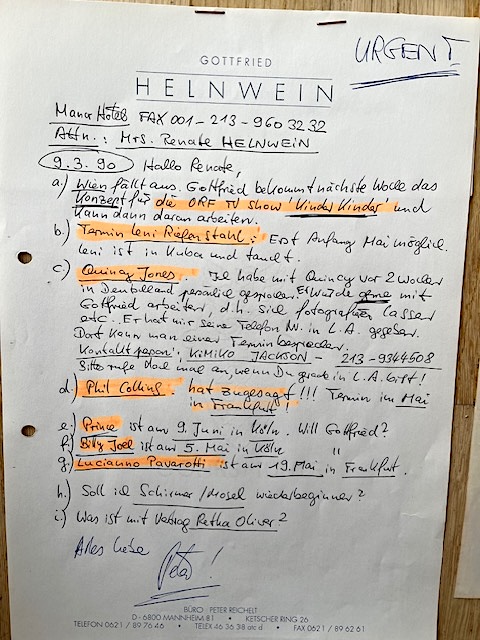 URGENT
GOTTFRIED
HELNWEIN
Manor Hotel FAX 001-213-960 32 32
Attn.: Mrs. Renate HELNWEIN
9.3.90 Hallo Renate,
a.) Wien fällt aus. Gottfried bekommt nächste Woche das
Konzept für die ORF TV show 'Kinder Kinder' und
kann dann daran arbeiten.
b.) Termin Leni Riefenstahl: Erst Anfang Mai möglich.
Leni ist in Kuba und taucht.
c.) Quincy Jones. Ich habe mit Quincy vor 2 Wochen
in Deutschland persönlich gesprochen. Er würde gerne mit
Gottfried arbeiten, d.h. sich fotografieren lassen
etc. Er hat mir seine Telefon Nr. in L.A. gegeben.
Dort kann man einen Termin besprechen.
Kontaktperson: KIMIKO JACKSON - 213-9344508
Bitte rufe doch mal an, wenn Du gerade in L.A. bist!
d.) Phil Collins. hat zugesagt!!! Termin im Mai
in Frankfurt!
e.) Prince ist am 9. Juni in Köln. Will Gottfried?
f.) Billy Joel ist am 5. Mai in Köln "
g.) Lucianno Pavarotti ist am 19. Mai in Frankfurt.
h.) Soll ich Schirmer/Mosel wiederbeginnen?
i.) Was ist mit Vertrag Retha Oliver?
Alles Liebe
Peter!
BÜRO: PETER REICHELT
D-6800 MANNHEIM 81 • KETSCHER RING 26
TELEFON 06 21 / 89 76 46 • TELEX 46 36 38 atc d • FAX 06 21 / 89 62 61